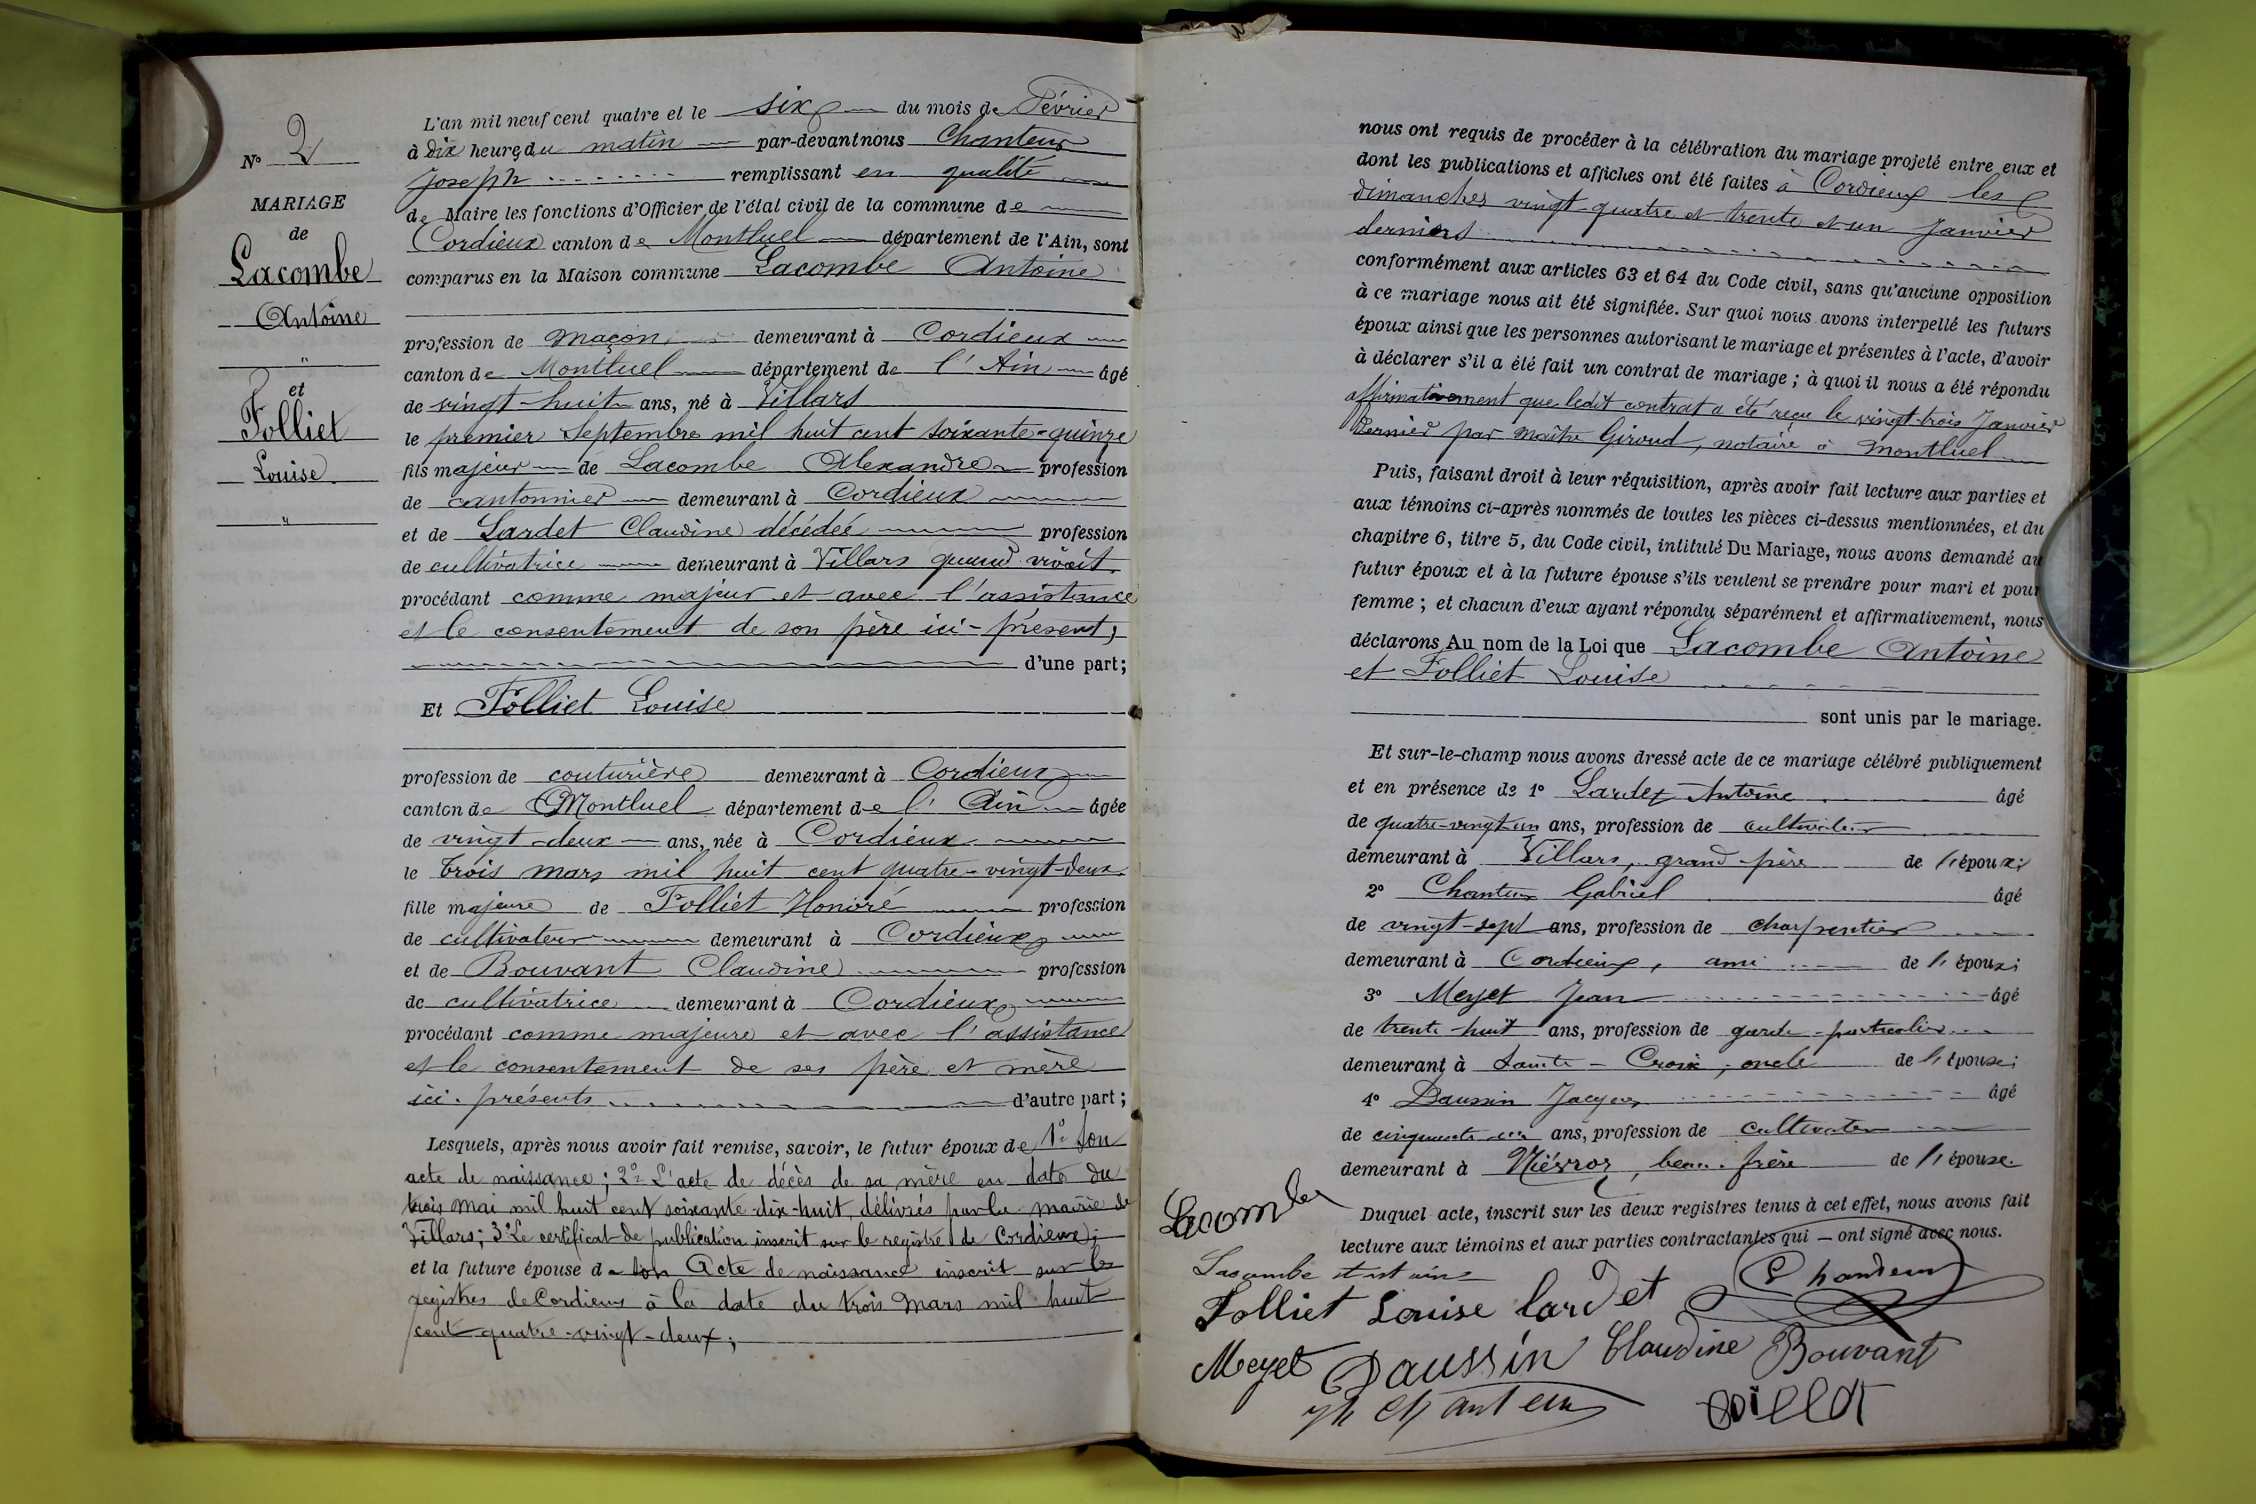 N° 2
MARIAGE
de
Lacombe
Antoine
"
et
Folliet
Louise
"
L'an mil neuf cent quatre et le six du mois de Février
à dix heures du matin par-devant nous Chanteur
Joseph remplissant en qualité
de Maire les fonctions d'Officier de l'état civil de la commune de
Cordieux canton de Montluel département de l'Ain, sont
comparus en la Maison commune Lacombe Antoine
profession de maçon demeurant à Cordieux
canton de Montluel département de l'Ain âgé
de vingt-huit ans, né à Villars
le premier Septembre mil huit cent soixante-quinze
fils majeur de Lacombe Alexandre profession
de cantonnier demeurant à Cordieux
et de Lardet Claudine décédée profession
de cultivatrice demeurant à Villars quand vivait
procédant comme majeur et avec l'assistance
et le consentement de son père ici-présent,
d'une part;
Et Folliet Louise
profession de couturière demeurant à Cordieux
canton de Montluel département de l'Ain âgée
de vingt-deux ans, née à Cordieux
le trois mars mil huit cent quatre-vingt-deux
fille majeure de Folliet Honoré profession
de cultivateur demeurant à Cordieux
et de Bouvant Claudine profession
de cultivatrice demeurant à Cordieux
procédant comme majeure et avec l'assistance
et le consentement de ses père et mère
ici-présents d'autre part;
Lesquels, après nous avoir fait remise, savoir, le futur époux de 1° Son
acte de naissance; 2° L'acte de décès de sa mère en date du
trois mai mil huit cent soixante-dix-huit, délivrés par la mairie de
Villars; 3° Le certificat de publication inscrit sur le registre de Cordieux;
et la future épouse de son Acte de naissance inscrit sur les
registres de Cordieux à la date du trois Mars mil huit
cent quatre-vingt-deux;
nous ont requis de procéder à la célébration du mariage projeté entre eux et
dont les publications et affiches ont été faites à Cordieux les
dimanches vingt-quatre et trente et un Janvier
derniers
conformément aux articles 63 et 64 du Code civil, sans qu'aucune opposition
à ce mariage nous ait été signifiée. Sur quoi nous avons interpellé les futurs
époux ainsi que les personnes autorisant le mariage et présentes à l'acte, d'avoir
à déclarer s'il a été fait un contrat de mariage; à quoi il nous a été répondu
affirmativement que ledit contrat a été reçu le vingt-trois Janvier
dernier par maître Giroud, notaire à Montluel
Puis, faisant droit à leur réquisition, après avoir fait lecture aux parties et
aux témoins ci-après nommés de toutes les pièces ci-dessus mentionnées, et du
chapitre 6, titre 5, du Code civil, intitulé Du Mariage, nous avons demandé au
futur époux et à la future épouse s'ils veulent se prendre pour mari et pour
femme; et chacun d'eux ayant répondu séparément et affirmativement, nous
déclarons Au nom de la Loi que Lacombe Antoine
et Folliet Louise
sont unis par le mariage.
Et sur-le-champ nous avons dressé acte de ce mariage célébré publiquement
et en présence de 1° Lardet Antoine âgé
de quatre-vingt-un ans, profession de cultivateur
demeurant à Villars, grand-père de l'époux;
2° Chanteur Gabriel âgé
de vingt-sept ans, profession de charpentier
demeurant à Cordieux, ami de l'époux;
3° Meyet Jean âgé
de trente-huit ans, profession de garde-particulier
demeurant à Sainte-Croix, oncle de l'épouse;
4° Daussin Jacques âgé
de cinquante ans, profession de cultivateur
demeurant à Niévroz, beau-frère de l'épouse.
Duquel acte, inscrit sur les deux registres tenus à cet effet, nous avons fait
lecture aux témoins et aux parties contractantes qui — ont signé avec nous.
Lacombe
Lacombe Antoine
Chanteur
Folliet Louise Lardet
Meyet Daussin Claudine Bouvant
Chanteur